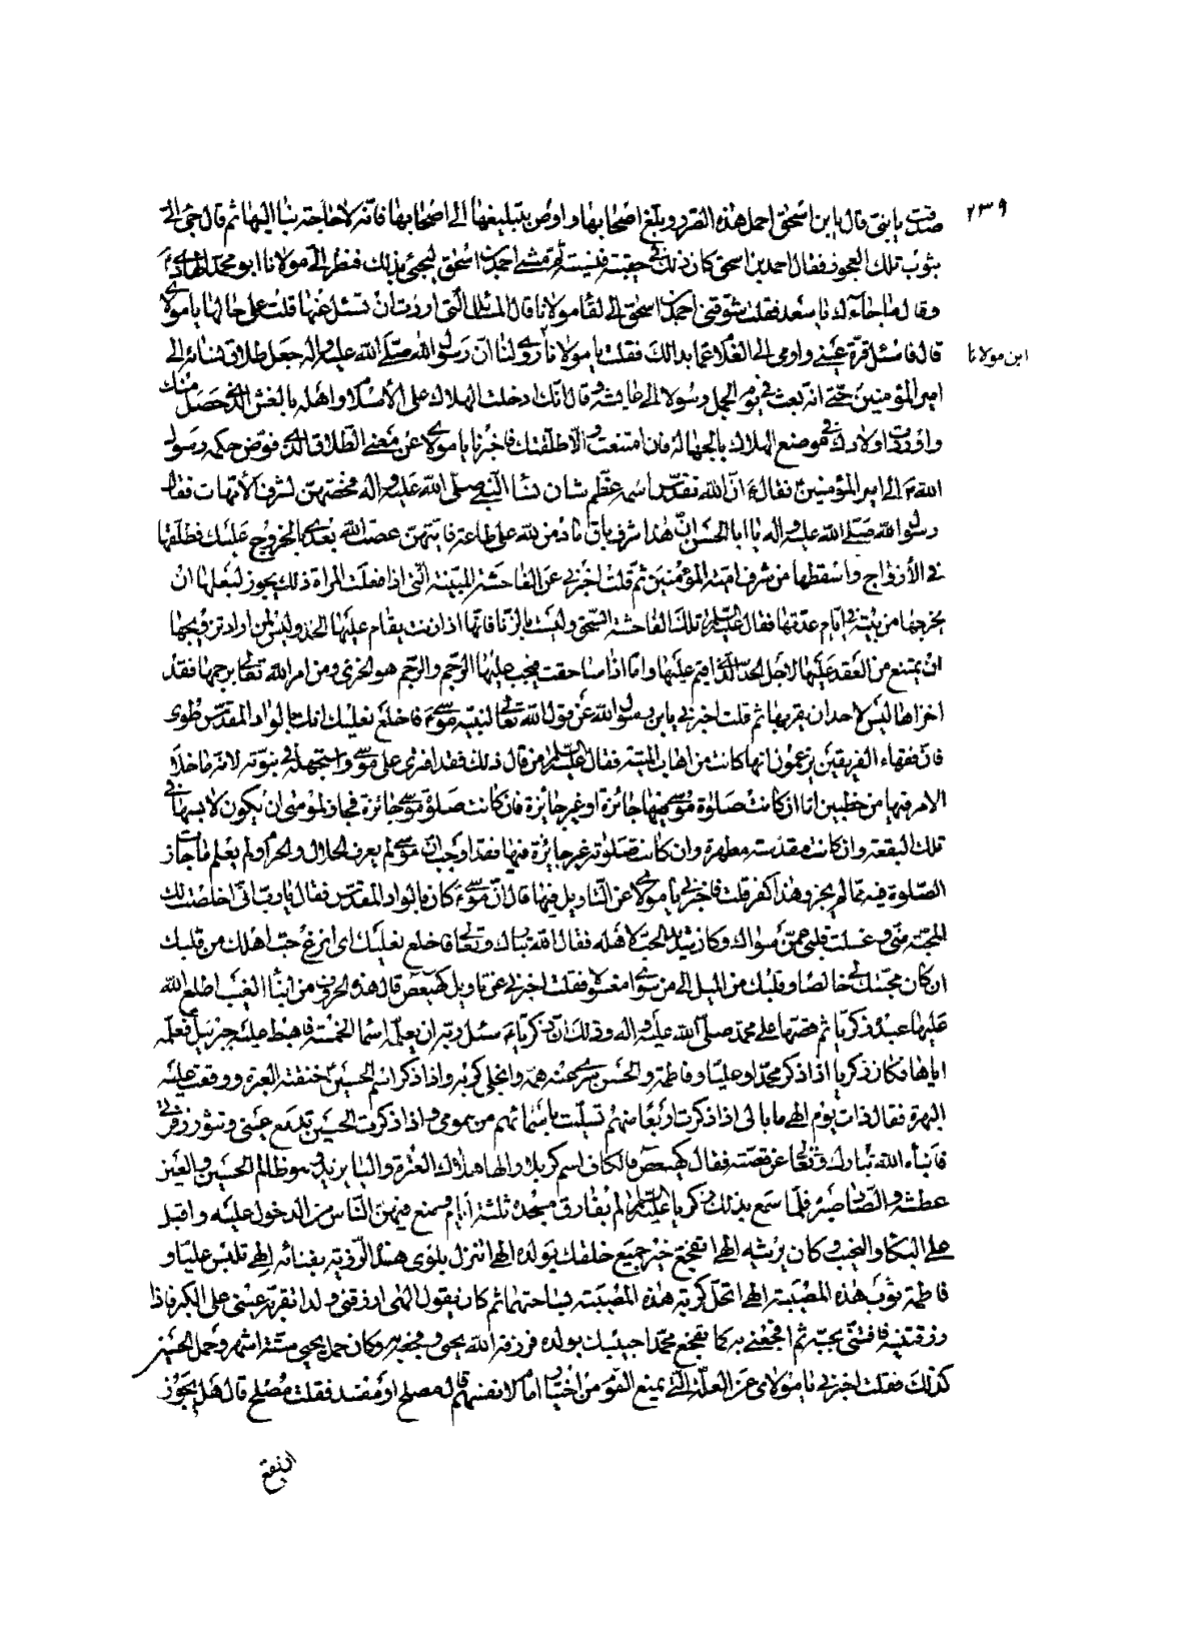 ٢٣٩
صدقت يا بني قال يا ابن اسحق احمل هذه الصرر وبلغ اصحابها واوص بتبليغها الى اصحابها فانه لا حاجة بنا اليها ثم قال جئ الى
بثوب تلك العجوز فقال احمد بن اسحق كان ذلك في حقيبة فنسيته ثم مشى احمد بن اسحق ليجئ بذلك فنظر الى مولانا ابو محمد الهادي ع
وقال ما جاء بك يا سعد فقلت شوقني احمد بن اسحق الى لقاء مولانا قال المسائل التي اردت ان تسئل عنها قلت على حالها يا مولاي
قال فاسئل قرة عيني واومى الى الغلام عما بدا لك فقلت يا مولانا روي لنا ان رسول الله صلى الله عليه واله جعل طلاق نسائه الى
ابن مولانا
امير المؤمنين حتى انه بعث في يوم الجمل رسولا الى عايشة وقال انك ادخلت الهلاك على الاسلام واهله بالغش الذي حصل منك
واوردت اولادك في موضع الهلاك بالجهالة فان امتنعت والا طلقتك فاخبرنا يا مولاي عن معنى الطلاق الذي فوض حكمه رسول
الله ص الى امير المؤمنين ع فقال ع ان الله تقدس اسمه عظم شان نساء النبي صلى الله عليه واله فخصهن لشرف الامهات فقال
رسول الله صلى الله عليه واله يا ابا الحسن ان هذا شرف باق ما دمن لله على طاعة فايتهن عصت الله بعدي بالخروج عليك فطلقها
في الازواج واسقطها من شرف امية المؤمنين ثم قلت اخبرني عن الفاحشة المبينة التي اذا فعلت المراة ذلك يجوز لبعلها ان
يخرجها من بيته في ايام عدتها فقال عليه السلم تلك الفاحشة السحق وليست بالزنا فانها اذا زنت يقام عليها الحد وليس لمن اراد تزويجها
ان يمتنع من العقد عليها لاجل الحد الذي اقيم عليها واما اذا ساحقت فيجب عليها الرجم والرجم هو الخزي ومن امر الله تعالى برجمها فقد
اخزاها ليس لاحد ان يقربها ثم قلت اخبرني يا ابن رسول الله عن قول الله تعالى لنبيه موسى ع فاخلع نعليك انك بالواد المقدس طوى
فان فقهاء الفريقين يزعمون انها كانت من اهاب الميتة فقال عليه السلم من قال ذلك فقد افترى على موسى واستجهله في نبوته لانه ما خلا
الامر فيها من خطبين اما ان كانت صلوة موسى فيها جائزة او غير جائزة فان كانت صلوة موسى جائزة فجاز لموسى ان يكون لابسها في
تلك البقعة وان كانت مقدسة مطهرة وان كانت صلوته غير جائزة فيها فقد اوجب ان موسى لم يعرف الحلال والحرام ولم يعلم ما جازت
الصلوة فيه مما لم يجز وهذا كفر قلت فاخبرني يا مولاي عن التاويل فيها قال ان موسى ع كان بالواد المقدس فقال يا رب اني اخلصت لك
المحبة مني وغسلت قلبي عمن سواك وكان شديد الحب لاهله فقال الله تبارك وتعالى فاخلع نعليك اي انزع حب اهلك من قلبك
ان كان محبتك لي خالصا وقلبك من الميل الى من سواي مغسولا فقلت اخبرني عن تاويل كهيعص قال هذه الحروف من انباء الغيب اطلع الله
عليها عبده زكريا ثم قصها على محمد صلى الله عليه واله وذلك ان زكريا ع سئل ربه ان يعلمه اسماء الخمسة فاهبط عليه جبرئيل فعلمه
اياها فكان زكريا اذا ذكر محمدا وعليا وفاطمة والحسن سري عنه همه وانجلى كربه واذا ذكر اسم الحسين خنقته العبرة ووقعت عليه
البهرة فقال ذات يوم الهي ما بالي اذا ذكرت اربعا منهم تسليت باسمائهم من همومي واذا ذكرت الحسين تدمع عيني وتثور زفرتي
فانبأه الله تبارك وتعالى عن قصته فقال كهيعص فالكاف اسم كربلا والهاء هلاك العترة والياء يزيد وهو ظالم الحسين والعين
عطشه والصاد صبره فلما سمع بذلك زكريا عليه السلم لم يفارق مسجده ثلثة ايام ومنع فيهن الناس من الدخول عليه واقبل
على البكاء والنحيب وكان يرثيه الهي اتفجع خير جميع خلقك بولده الهي اتنزل بلوى هذه الرزية بفنائه الهي تلبس عليا و
فاطمة ثوب هذه المصيبة الهي اتحل كربة هذه المصيبة بساحتهما ثم كان يقول الهي ارزقني ولدا تقر به عيني على الكبر فاذا
رزقتنيه فافتني بحبه ثم افجعني به كما تفجع محمدا حبيبك بولده فرزقه الله يحيى وفجعه به وكان حمل يحيى ستة اشهر وحمل الحسين
كذلك فقلت اخبرني يا مولاي عن العلة التي تمنع القوم من اختيار امام لانفسهم قال مصلح او مفسد فقلت مصلح قال هل يجوز